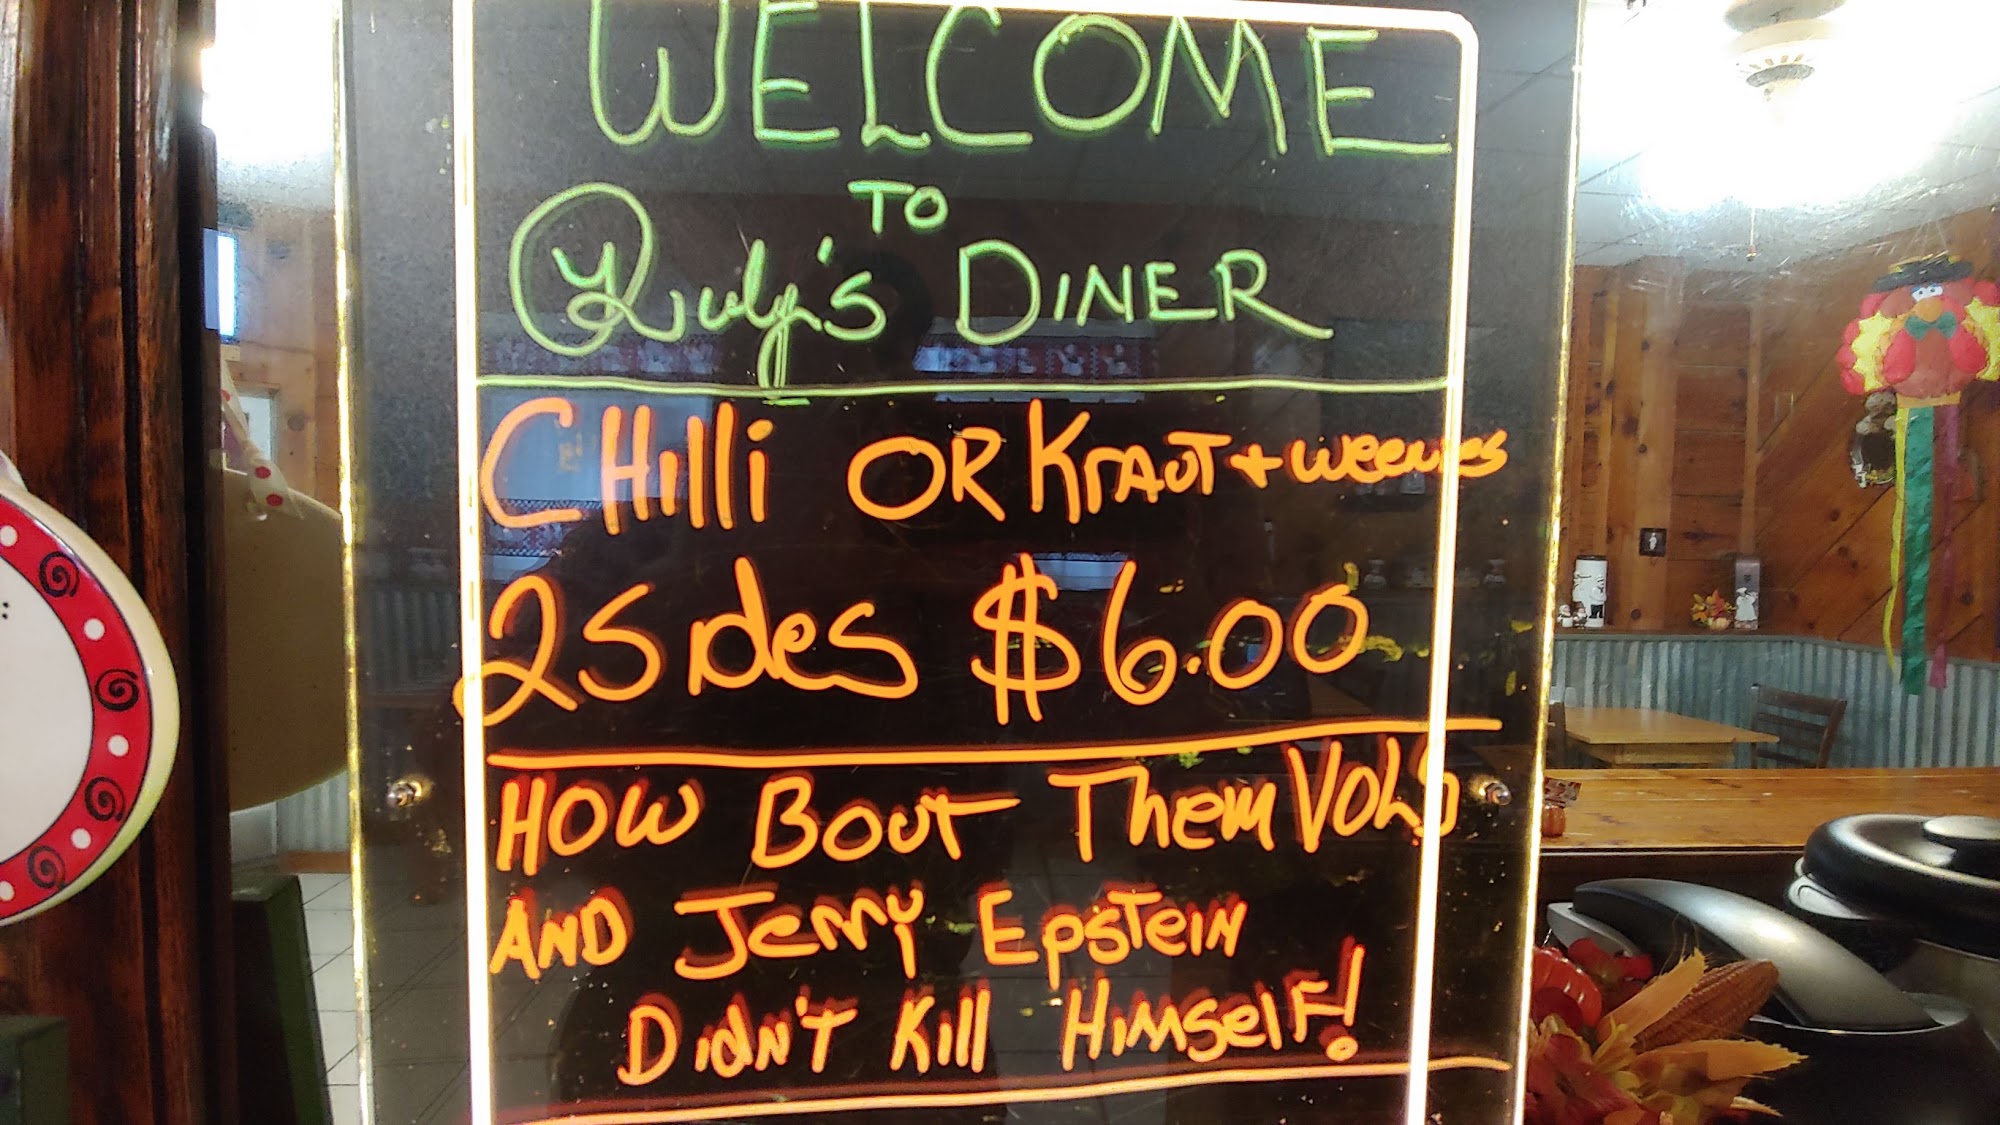 WELCOME
TO
Ruby's DINER
CHilli OR KrAUT + weenies
2 Sides $6.00
HOW BOUT THem VOLS
AND Jerry EpSTeiN
DiDN'T Kill HiMSelF!